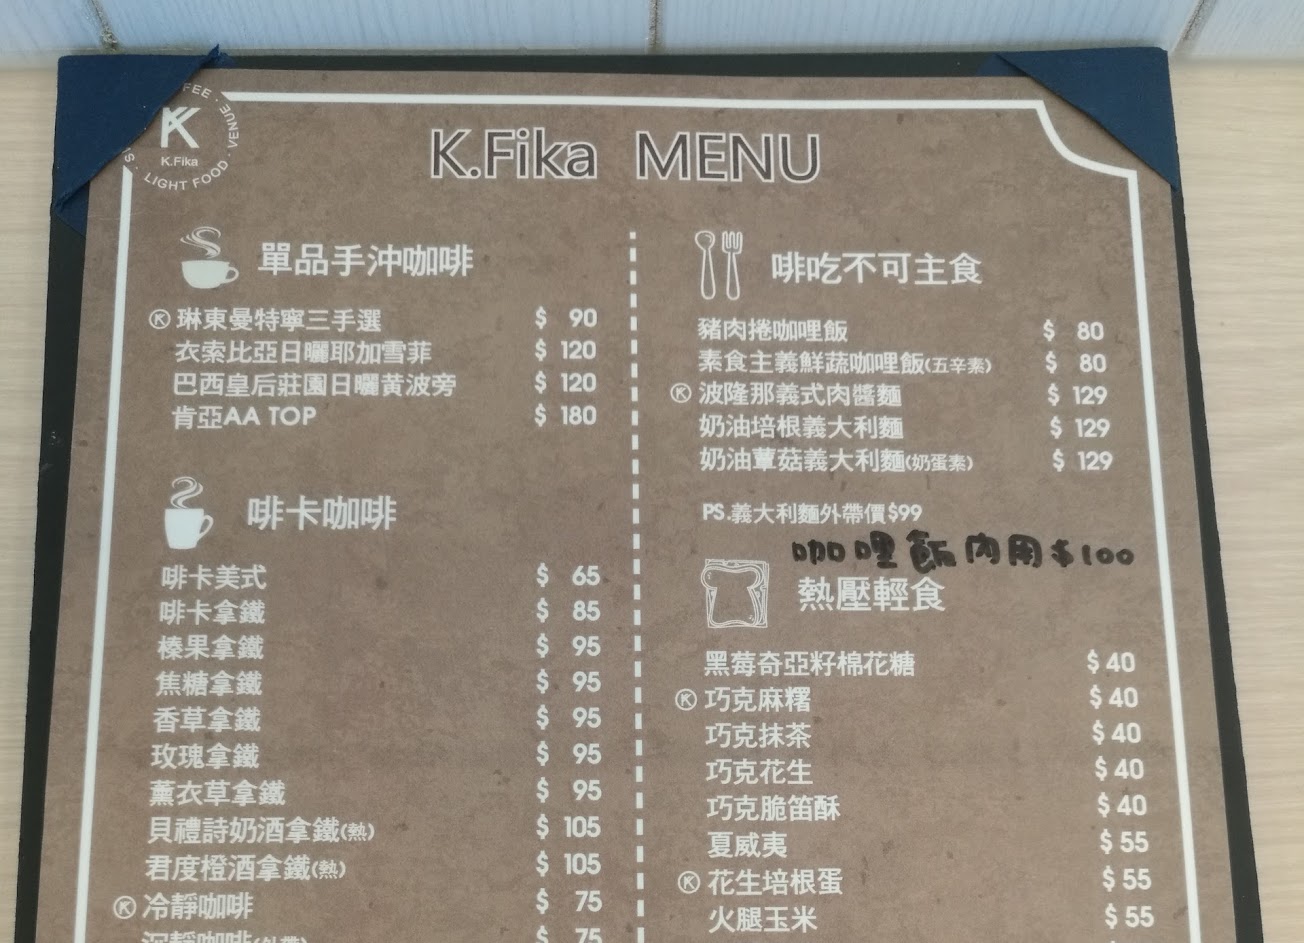 FEE · VENUE
K
K.Fika
LIGHT FOOD
K.Fika MENU
單品手沖咖啡
琳東曼特寧三手選 $ 90
衣索比亞日曬耶加雪菲 $ 120
巴西皇后莊園日曬黃波旁 $ 120
肯亞AA TOP $ 180
啡卡咖啡
啡卡美式 $ 65
啡卡拿鐵 $ 85
榛果拿鐵 $ 95
焦糖拿鐵 $ 95
香草拿鐵 $ 95
玫瑰拿鐵 $ 95
薰衣草拿鐵 $ 95
貝禮詩奶酒拿鐵(熱) $ 105
君度橙酒拿鐵(熱) $ 105
冷靜咖啡 $ 75
$ 75
啡吃不可主食
豬肉捲咖哩飯 $ 80
素食主義鮮蔬咖哩飯(五辛素) $ 80
波隆那義式肉醬麵 $ 129
奶油培根義大利麵 $ 129
奶油蕈菇義大利麵(奶蛋素) $ 129
PS.義大利麵外帶價$99
咖哩飯內用$100
熱壓輕食
黑莓奇亞籽棉花糖 $40
巧克麻糬 $40
巧克抹茶 $40
巧克花生 $40
巧克脆笛酥 $40
夏威夷 $55
花生培根蛋 $55
火腿玉米 $55